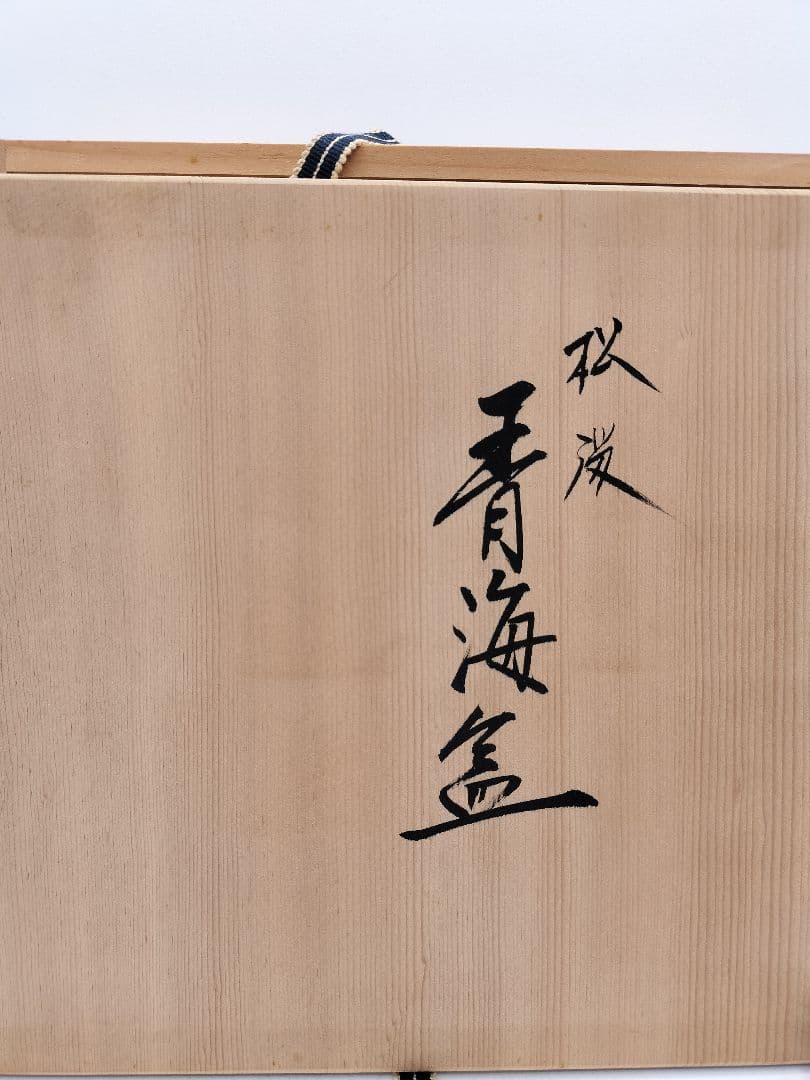 松渓
青海盆